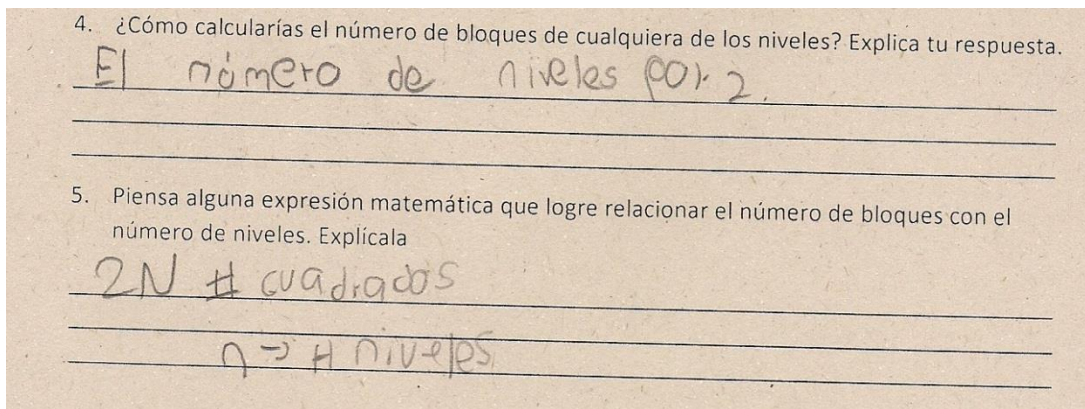 4. ¿Cómo calcularías el número de bloques de cualquiera de los niveles? Explica tu respuesta.
El número de niveles por 2.
5. Piensa alguna expresión matemática que logre relacionar el número de bloques con el
número de niveles. Explícala
2N # cuadrados
n → # niveles